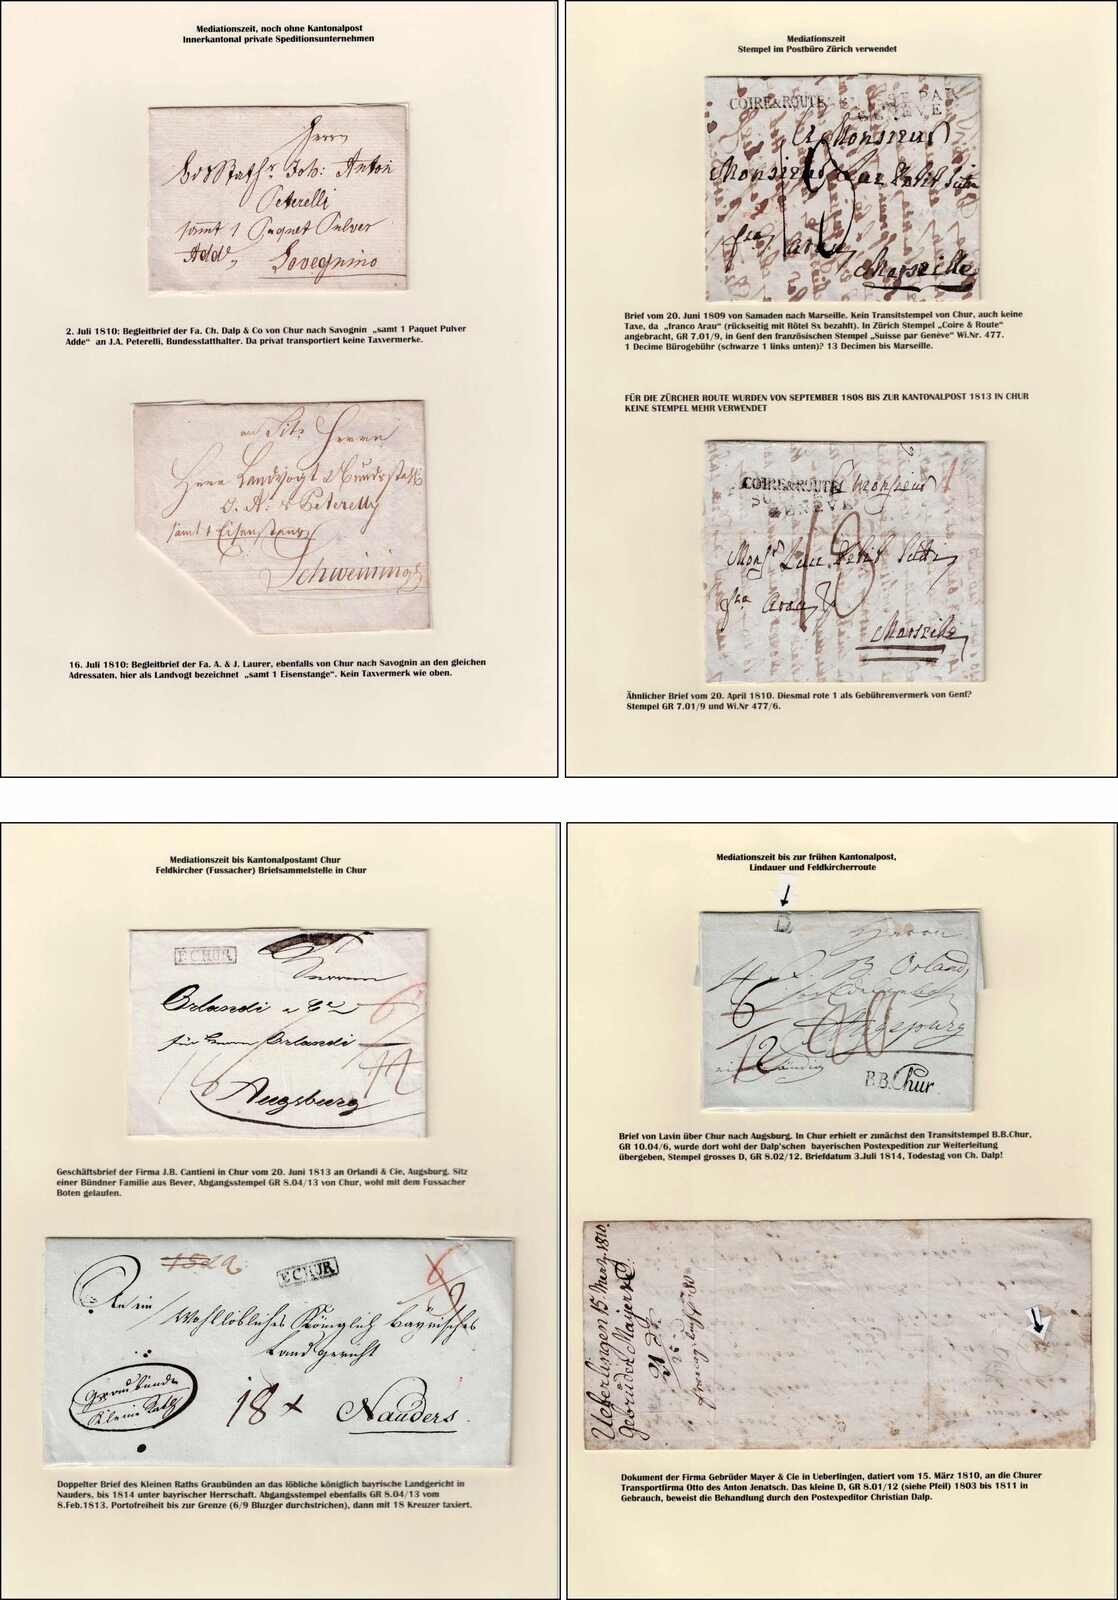 Mediationszeit, noch ohne Kantonalpost
Innerkantonal private Speditionsunternehmen
Herrn
Joh: Anton
Peterelli
samt 1 Paquet Pulver
Adde
Sovegnino
2. Juli 1810: Begleitbrief der Fa. Ch. Dalp & Co von Chur nach Savognin „samt 1 Paquet Pulver
Adde“ an J.A. Peterelli, Bundesstatthalter. Da privat transportiert keine Taxvermerke.
Herrn
Herrn Landvogt
samt 1 Eisenstange
Schweiningen
16. Juli 1810: Begleitbrief der Fa. A. & J. Laurer, ebenfalls von Chur nach Savognin an den gleichen
Adressaten, hier als Landvogt bezeichnet „samt 1 Eisenstange“. Kein Taxvermerk wie oben.
Mediationszeit
Stempel im Postbüro Zürich verwendet
COIRE&ROUTE
GENEVE
A Monsieur
Monsieur Luc Petit
Marseille
Brief vom 20. Juni 1809 von Samaden nach Marseille. Kein Transitstempel von Chur, auch keine
Taxe, da „franco Arau“ (rückseitig mit Rötel 8x bezahlt). In Zürich Stempel „Coire & Route“
angebracht, GR 7.01/9, in Genf den französischen Stempel „Suisse par Genève“ Wi.Nr. 477.
1 Decime Bürogebühr (schwarze 1 links unten)? 13 Decimen bis Marseille.
FÜR DIE ZÜRCHER ROUTE WURDEN VON SEPTEMBER 1808 BIS ZUR KANTONALPOST 1813 IN CHUR
KEINE STEMPEL MEHR VERWENDET
COIRE&ROUTE Monsieur
GENEVE
13
Marseille
Ähnlicher Brief vom 20. April 1810. Diesmal rote 1 als Gebührenvermerk von Genf?
Stempel GR 7.01/9 und Wi.Nr 477/6.
Mediationszeit bis Kantonalpostamt Chur
Feldkircher (Fussacher) Briefsammelstelle in Chur
F.CHUR
Herren
Orlandi & Ce
für Herrn Orlandi
Augsburg
Geschäftsbrief der Firma J.B. Cantieni in Chur vom 20. Juni 1813 an Orlandi & Cie, Augsburg. Sitz
einer Bündner Familie aus Bever, Abgangsstempel GR 8.04/13 von Chur, wohl mit dem Fussacher
Boten gelaufen.
F.CHUR
An ein
Wohllöbliches Königlich Bayrisches
Landgericht
Graubünden
Kleine Rath
18 x
Nauders
Doppelter Brief des Kleinen Raths Graubünden an das löbliche königlich bayrische Landgericht in
Nauders, bis 1814 unter bayrischer Herrschaft. Abgangsstempel ebenfalls GR 8.04/13 vom
8.Feb.1813. Portofreiheit bis zur Grenze (6/9 Bluzger durchstrichen), dann mit 18 Kreuzer taxiert.
Mediationszeit bis zur frühen Kantonalpost,
Lindauer und Feldkircherroute
D.
Herrn
Augspurg
B.B.Chur.
Brief von Lavin über Chur nach Augsburg. In Chur erhielt er zunächst den Transitstempel B.B.Chur,
GR 10.04/6, wurde dort wohl der Dalp'schen bayerischen Postexpedition zur Weiterleitung
übergeben, Stempel grosses D, GR 8.02/12. Briefdatum 3.Juli 1814, Todestag von Ch. Dalp!
Ueberlingen 15 Merz 1810.
Gebrüder Maijer & C
Dokument der Firma Gebrüder Mayer & Cie in Ueberlingen, datiert vom 15. März 1810, an die Churer
Transportfirma Otto des Anton Jenatsch. Das kleine D, GR 8.01/12 (siehe Pfeil) 1803 bis 1811 in
Gebrauch, beweist die Behandlung durch den Postexpeditor Christian Dalp.